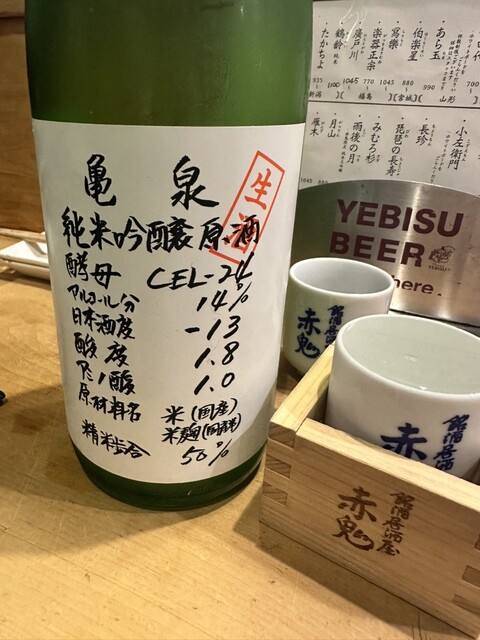 亀泉
生酒
純米吟醸原酒
酵母 CEL-24
アルコール分 14%
日本酒度 -13
酸度 1.8
アミノ酸 1.0
原材料名 米(国産)
米麹(国産米)
精米歩合 50%
YEBISU
BEER
here.
銘酒居酒屋
赤鬼
銘酒居酒屋
赤鬼
銘酒居酒屋
赤鬼
あら玉
伯楽星
寫樂
楽器正宗
廣戸川
鶴齢 純米
たかちよ
990
880
1045
770
1045
1100
935
山形
宮城
福島
新潟
小左衛門
長珍
琵琶の長寿
みむろ杉
雨後の月
月山
雁木